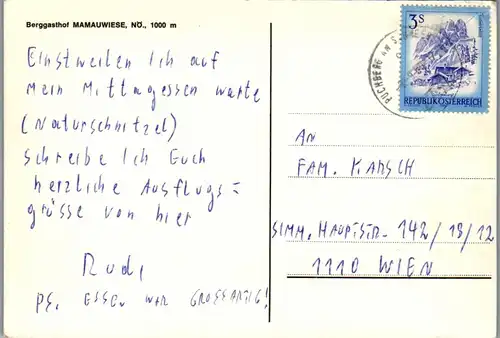 Berggasthof MAMAUWIESE, NÖ., 1000 m
Einstweilen Ich auf
mein Mittagessen warte
(Naturschnitzel)
schreibe Ich Euch
herzliche Ausflugs=
grüsse von hier
Rudi
PS. ESSEN WAR GROSSARTIG!
3S
REPUBLIK ÖSTERREICH
PUCHBERG AM
AN
FAM. KARSCH
SIMM. HAUPTSTR. 142/18/12
1110 WIEN